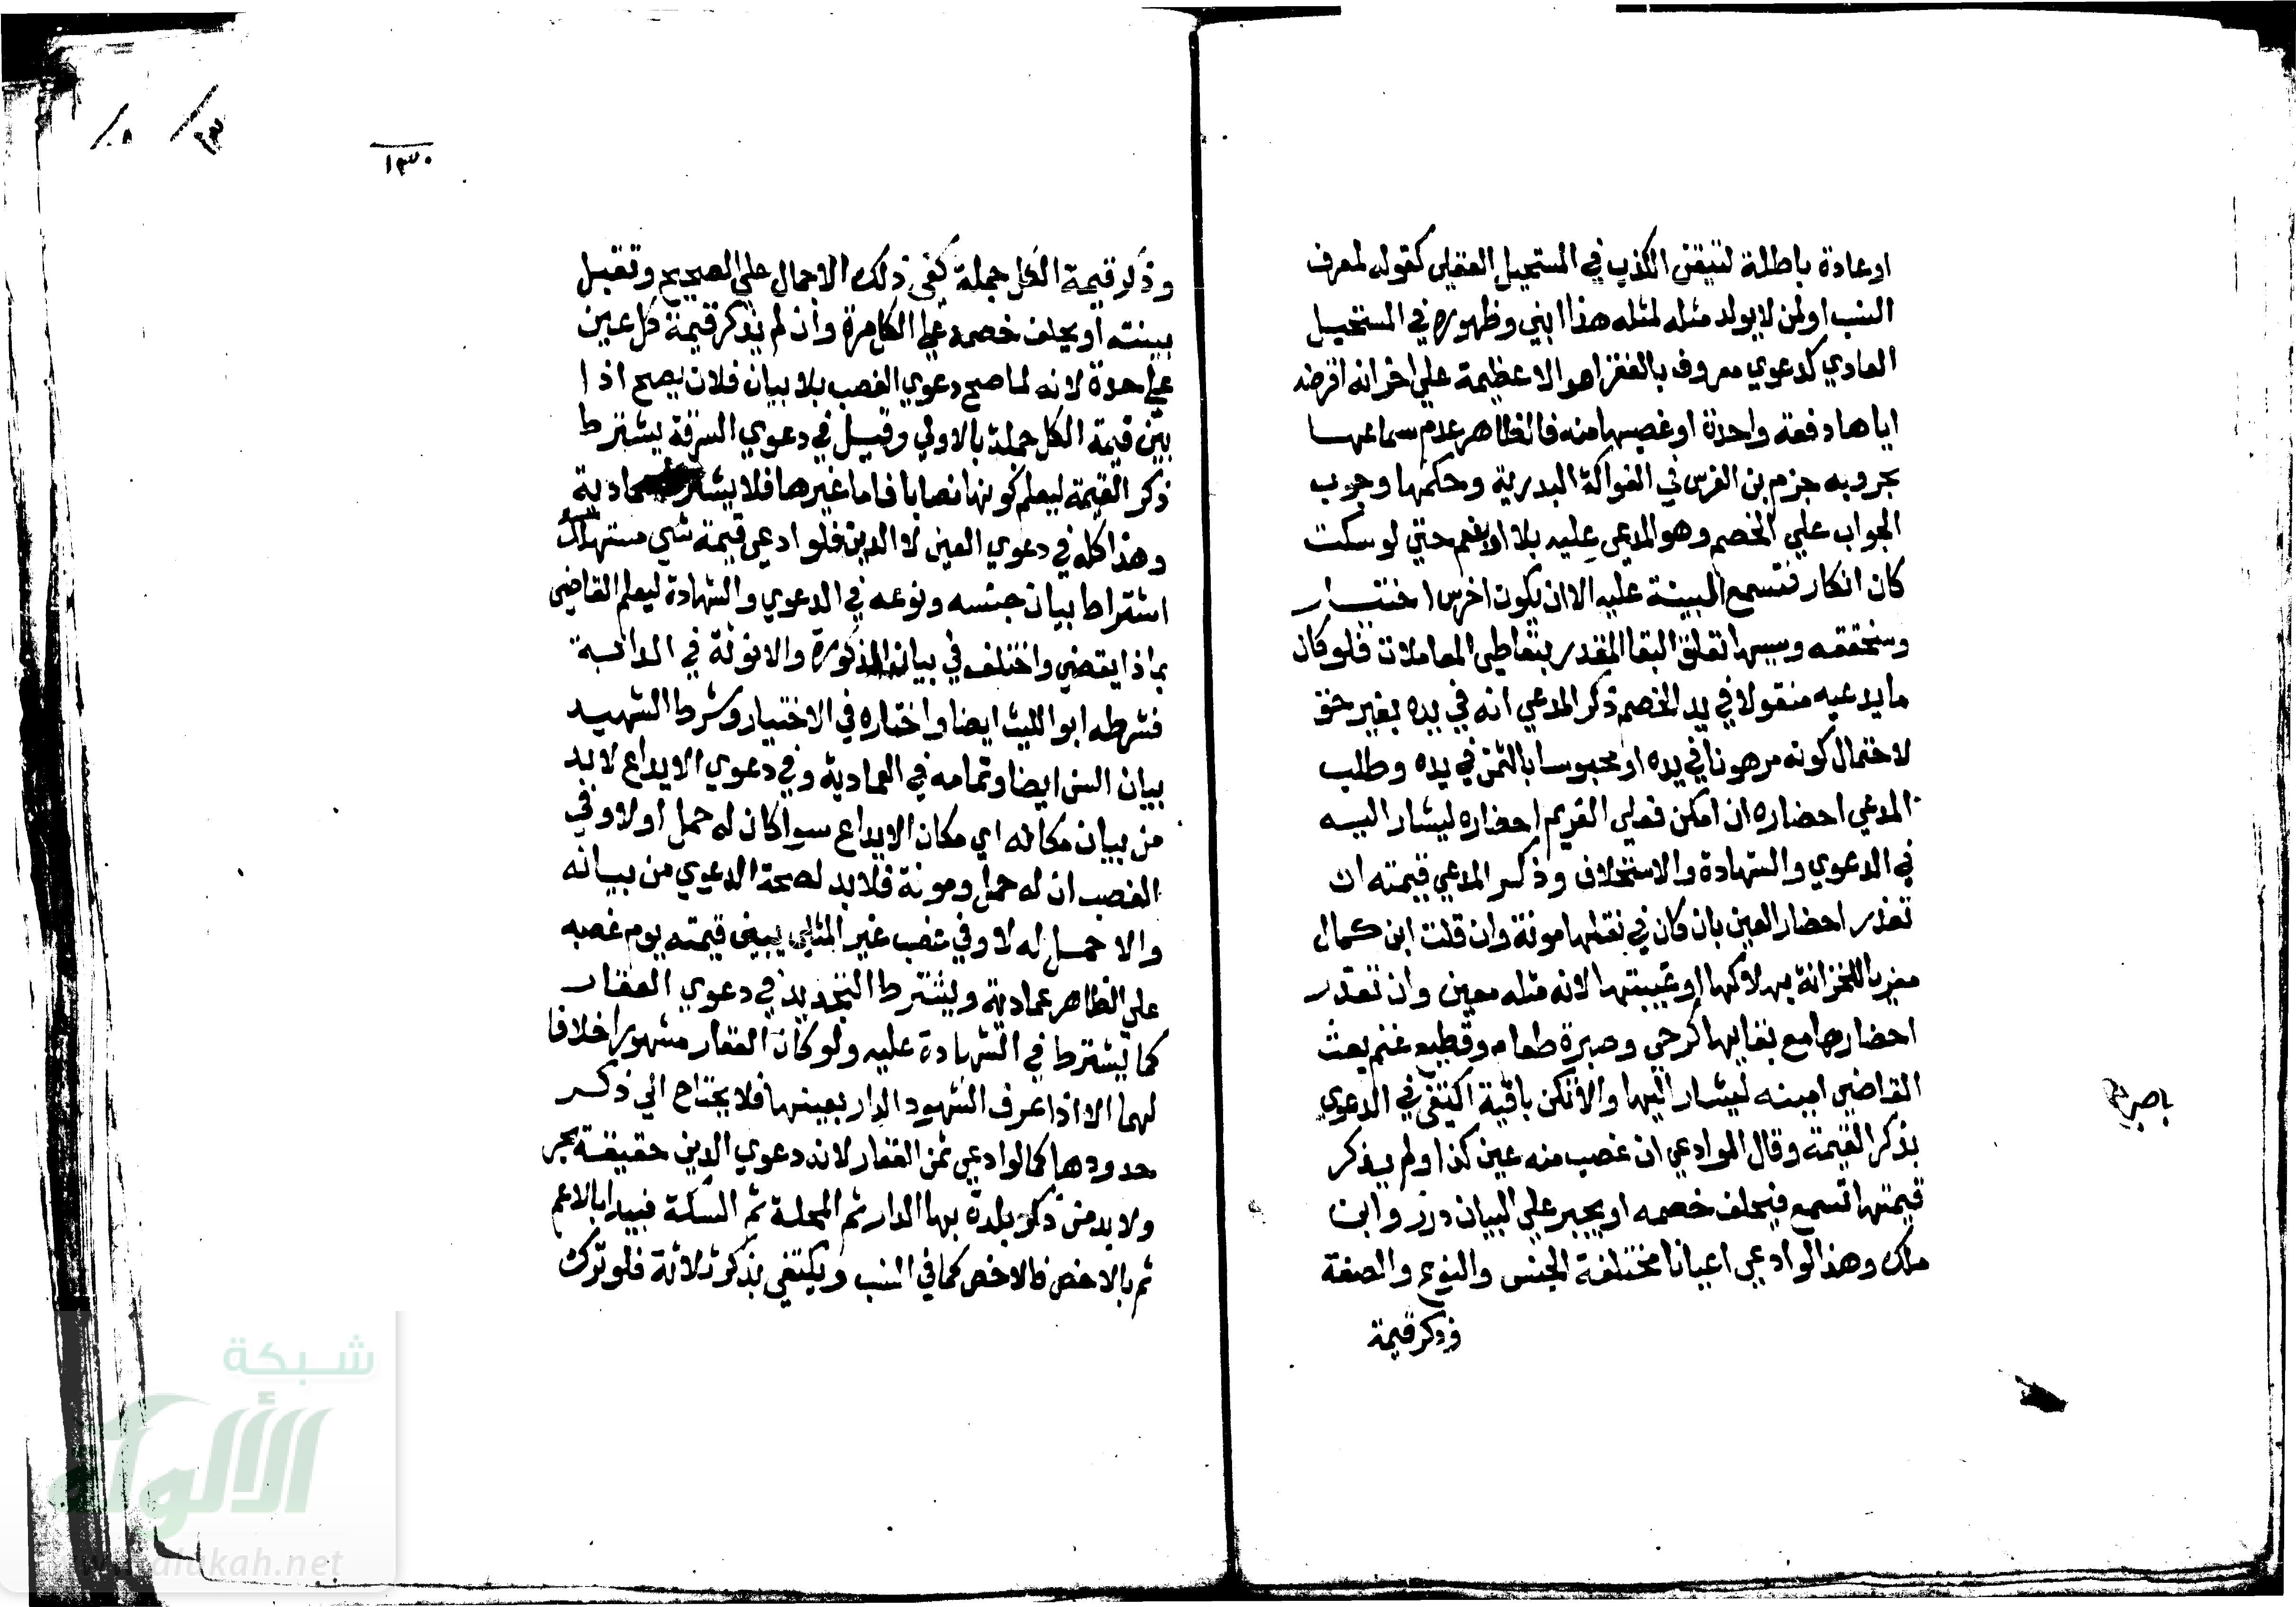 اوعادة باطلة لتيقن الكذب في المستحيل العقلي كقوله لمعرف
النسب اولمن لا يولد مثله لمثله هذا ابني وظهوره في المستحيل
العادي كدعوي معروف بالفقر اموالا عظيمة علي اخر انه اقرضه
اياها دفعة واحدة او غصبها منه فالظاهر عدم سماعها
بحر وبه جزم بن الغرس في الفواكة البدرية وحكمها وجوب
الجواب علي الخصم وهو المدعي عليه بلا او بنعم حتي لو سكت
كان انكار فتسمع البينة عليه الا ان يكون اخرس اختيار
وسنحققه وسببها تعلق البقا المقدر بتعاطي المعاملات فلو كان
ما يدعيه منقولا في يد الخصم ذكر المدعي انه في يده بغير حق
لاحتمال كونه مرهونا في يده او محبوسا بالثمن في يده وطلب
المدعي احضاره ان امكن فعلي الغريم احضاره ليشار اليه
في الدعوي والشهادة والاستحلاف وذكر المدعي قيمته ان
تعذر احضار العين بان كان في نقلها مونة وان قلت ابن كمال
معزيا للخزانة بهلاكها او غيبتها لانه مثله معين وان تعذر
احضارها مع بقايها كرحي وصبرة طعام وقطيع غنم بعث
القاضي امينه ليشار اليها والا تكن باقية اكتفي في الدعوي
بذكر القيمة وقالوا لو ادعي ان غصب منه عين كذا ولم يذكر
قيمتها تسمع فيحلف خصمه او يجبر علي البيان درر وابن
ملك وهذا لو ادعي اعيانا مختلفة الجنس والنوع والصفة
وذكر قيمة
١٣٠
وذكر قيمة الكل جملة كفي ذلك الاجمال علي الصحيح وتقبل
بينته او يحلف خصمه علي الكل مرة وان لم يذكر قيمة كل عين
علي حدة لانه لما صح دعوي الغصب بلا بيان فلان يصح اذا
بين قيمة الكل جملة بالاولي وقيل في دعوي السرقة يشترط
ذكر القيمة ليعلم كونها نصابا فاما غيرها فلا يشترط عمادية
وهذا كله في دعوي العين لا الدين فلو ادعي قيمة شي مستهلك
اشتراط بيان جنسه ونوعه في الدعوي والشهادة ليعلم القاضي
بماذا يقضي واختلف في بيان الذكورة والانوثة في الدابة
فشرطه ابو الليث ايضا واختاره في الاختيار وشرط الشهيد
بيان السن ايضا وتمامه في العمادية وفي دعوي الايداع لا بد
من بيان مكانه اي مكان الايداع سوا كان له حمل او لا وفي
الغصب ان له حمل ومونة فلا بد لصحة الدعوي من بيانه
والا حمل له لا وفي غصب غير المثلي يبين قيمته يوم غصبه
علي الظاهر عمادية ويشترط التحديد في دعوي العقار
كما يشترط في الشهادة عليه ولو كان العقار مشهورا خلافا
لهما الا اذا عرف الشهود الدار بعينها فلا يحتاج الي ذكر
حدودها كما لو ادعي ثمن العقار لانه دعوي الدين حقيقة بحر
ولا بد من ذكر بلدة بها الدار ثم المحلة ثم السكة فيبدا بالاعم
ثم بالاخص فالاخص كما في النسب ويكتفي بذكر ثلاثة فلو ترك
شبكة
الألوكة
www.alukah.net